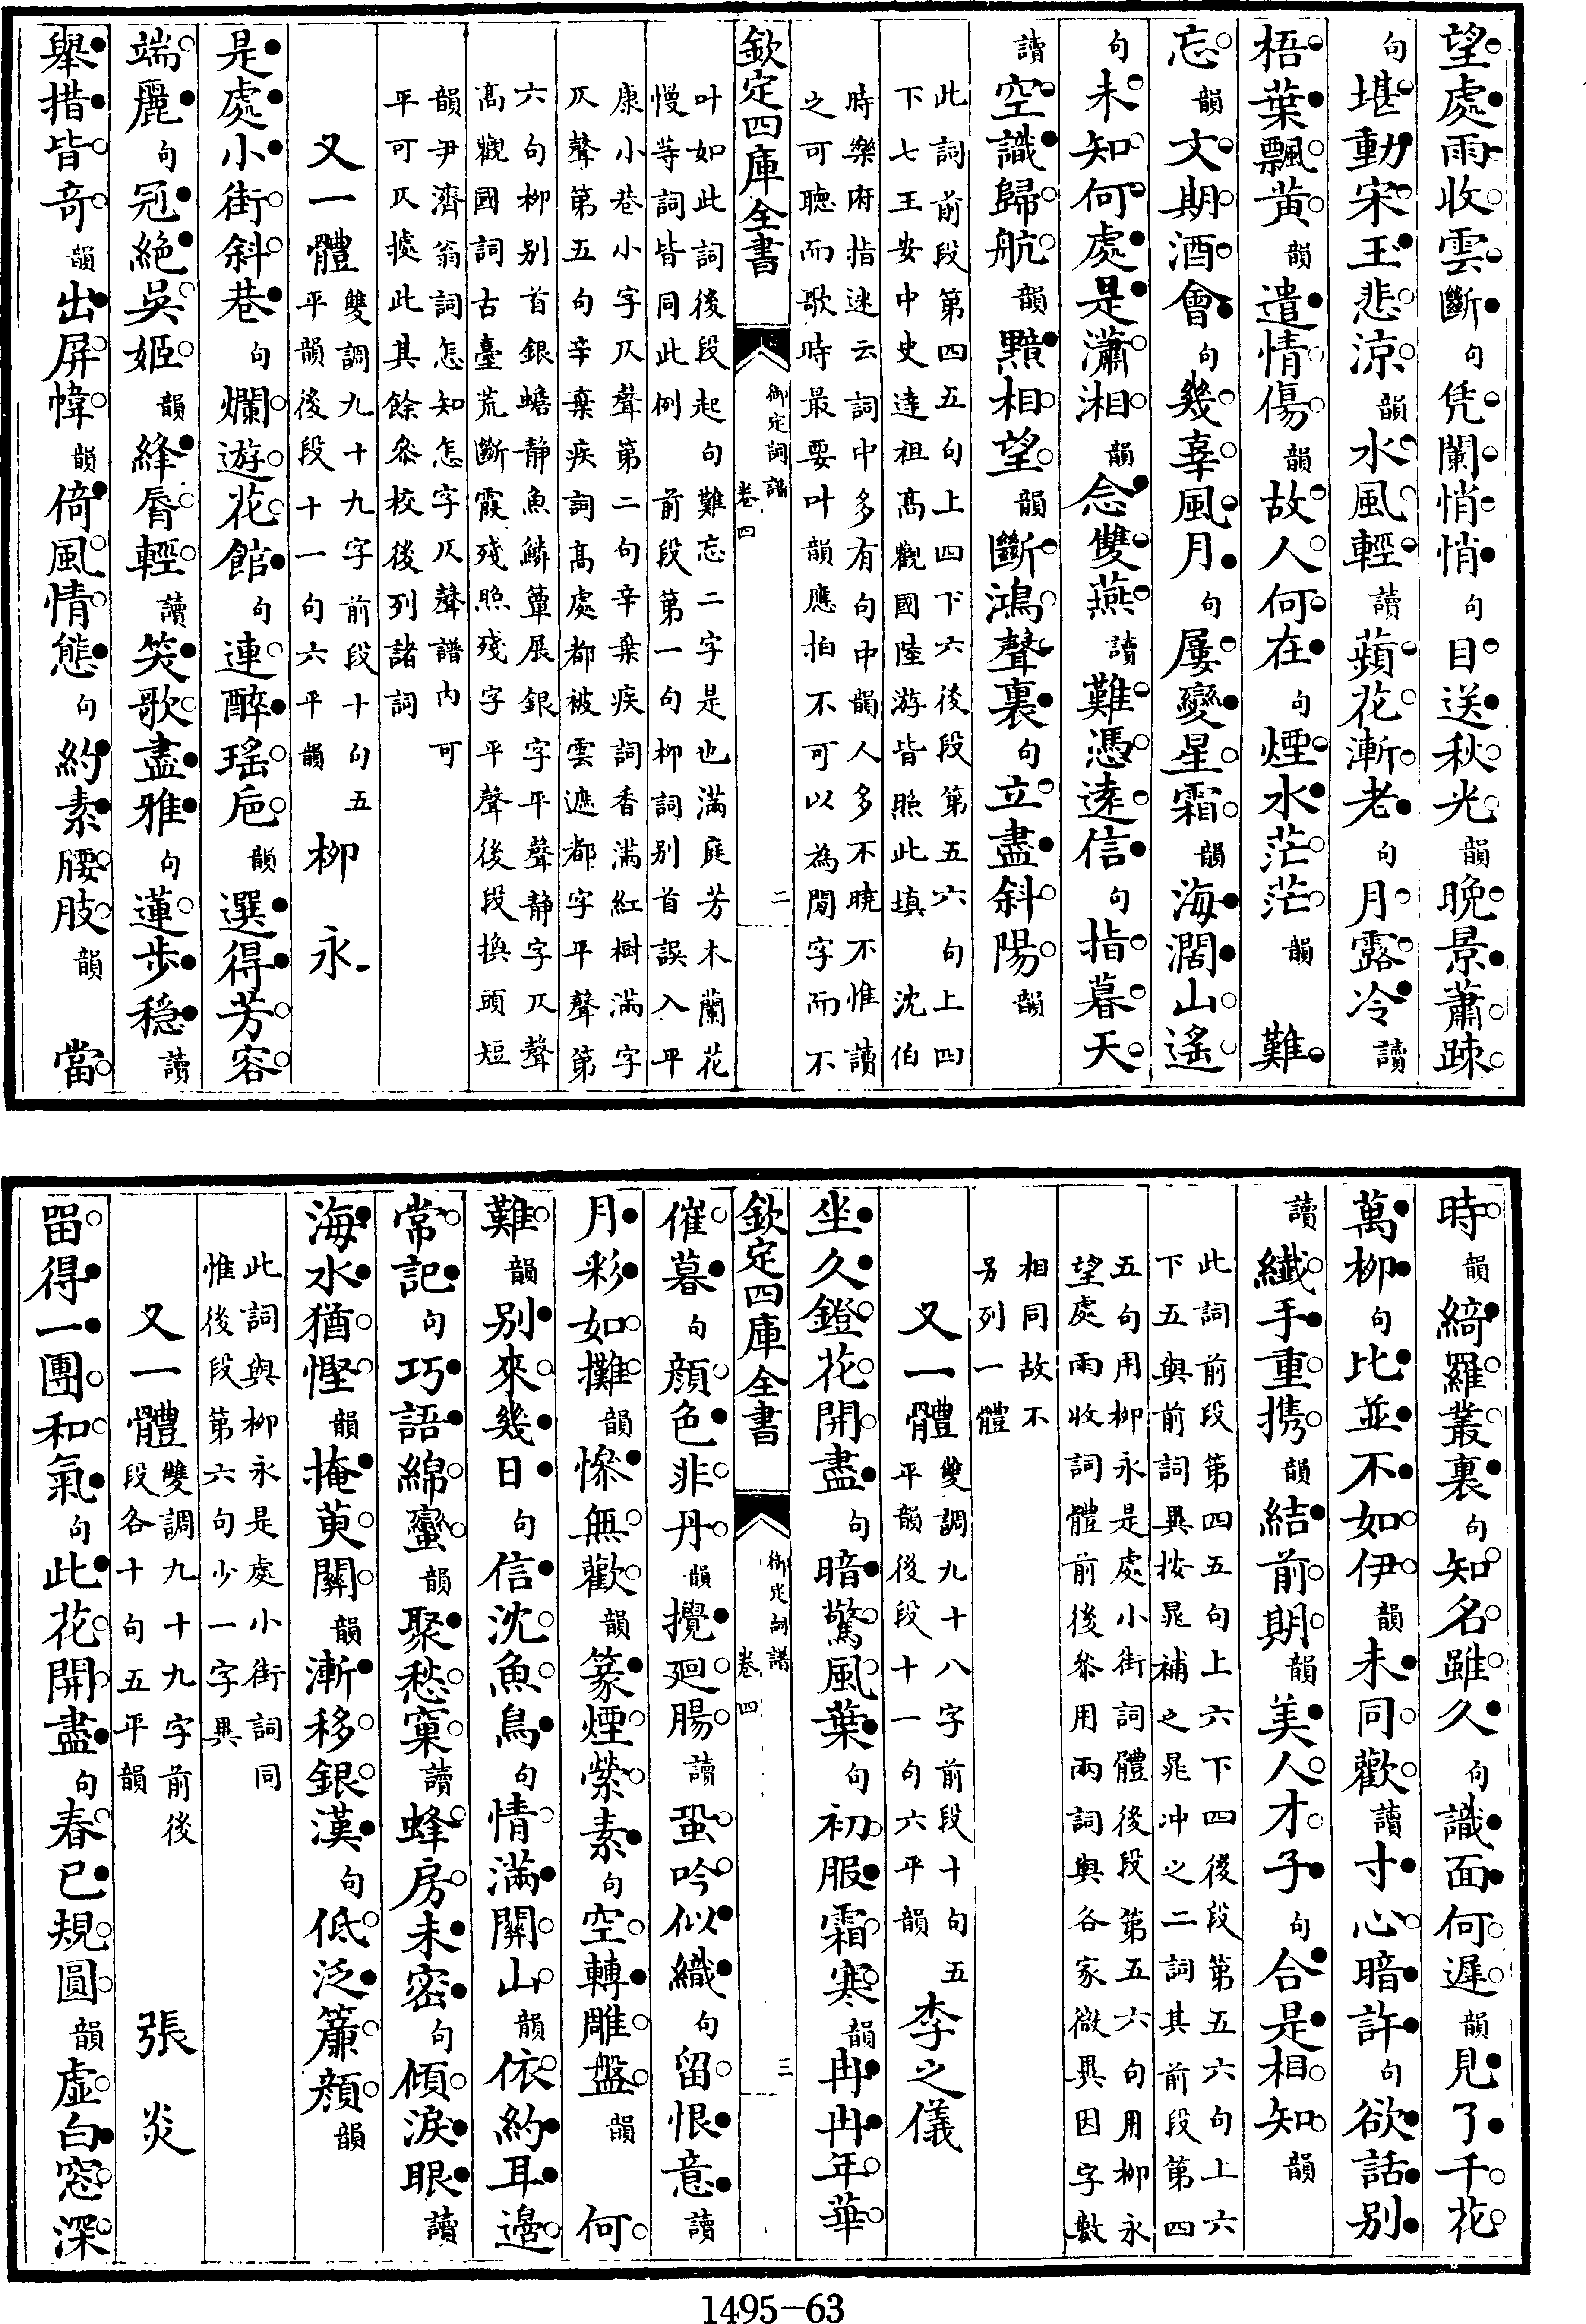 望處雨收雲斷句凭闌悄悄句目送秋光韻晚景蕭疎
句堪動宋玉悲涼韻水風輕讀蘋花漸老句月露冷讀
梧葉飄黃韻遣情傷韻故人何在句煙水茫茫韻　難
忘韻文期酒會句幾辜風月句屢變星霜韻海濶山遙
句未知何處是瀟湘韻念雙燕讀難憑逺信句指暮天
讀空識歸航韻黯相望韻斷鴻聲裏句立盡斜陽韻
此詞前段第四五句上四下六後段第五六句上四
下七王安中史達祖髙觀國陸游皆照此填　沈伯
時樂府指迷云詞中多有句中韻人多不曉不惟讀
之可聽而歌時最要叶韻應拍不可以為閒字而不
欽定四庫全書
御定詞譜
卷四
二
叶如此詞後段起句難忘二字是也滿庭芳木蘭花
慢等詞皆同此例　前段第一句柳詞别首誤入平
康小巷小字仄聲第二句辛棄疾詞香滿紅樹滿字
仄聲第五句辛棄疾詞髙處都被雲遮都字平聲第
六句柳别首銀蟾静魚鱗簟展銀字平聲静字仄聲
髙觀國詞古臺荒斷霞殘照殘字平聲後段換頭短
韻尹濟翁詞怎知怎字仄聲譜内可
平可仄據此其餘叅校後列諸詞
又一體
雙調九十九字前段十句五
平韻後段十一句六平韻
柳永
是處小街斜巷句爛遊花館句連醉瑤巵韻選得芳容
端麗句冠絶吳姬韻絳脣輕讀笑歌盡雅句蓮步穩讀
舉措皆奇韻出屏幃韻倚風情態句約素腰肢韻　當
時韻綺羅叢裏句知名雖久句識面何遲韻見了千花
萬柳句比並不如伊韻未同歡讀寸心暗許句欲話别
讀纎手重携韻結前期韻美人才子句合是相知韻
此詞前段第四五句上六下四後段第五六句上六
下五與前詞異按晁補之晁冲之二詞其前段第四
五句用柳永是處小街詞體後段第五六句用柳永
望處雨收詞體前後叅用兩詞與各家微異因字數
相同故不
另列一體
又一體
雙調九十八字前段十句五
平韻後段十一句六平韻
李之儀
坐久鐙花開盡句暗驚風葉句初服霜寒韻冉冉年華
欽定四庫全書
御定詞譜
卷四
三
催暮句顔色非丹韻攪廻腸讀蛩吟似織句留恨意讀
月彩如攤韻慘無歡韻篆煙縈素句空轉雕盤韻　何
難韻别來幾日句信沈魚鳥句情滿關山韻依約耳邊
常記句巧語綿蠻韻聚愁窠讀蜂房未密句傾淚眼讀
海水猶慳韻掩萸關韻漸移銀漢句低泛簾顔韻
此詞與柳永是處小街詞同
惟後段第六句少一字異
又一體
雙調九十九字前後
段各十句五平韻
張炎
留得一團和氣句此花開盡句春已規圓韻虚白窓深
1495-63